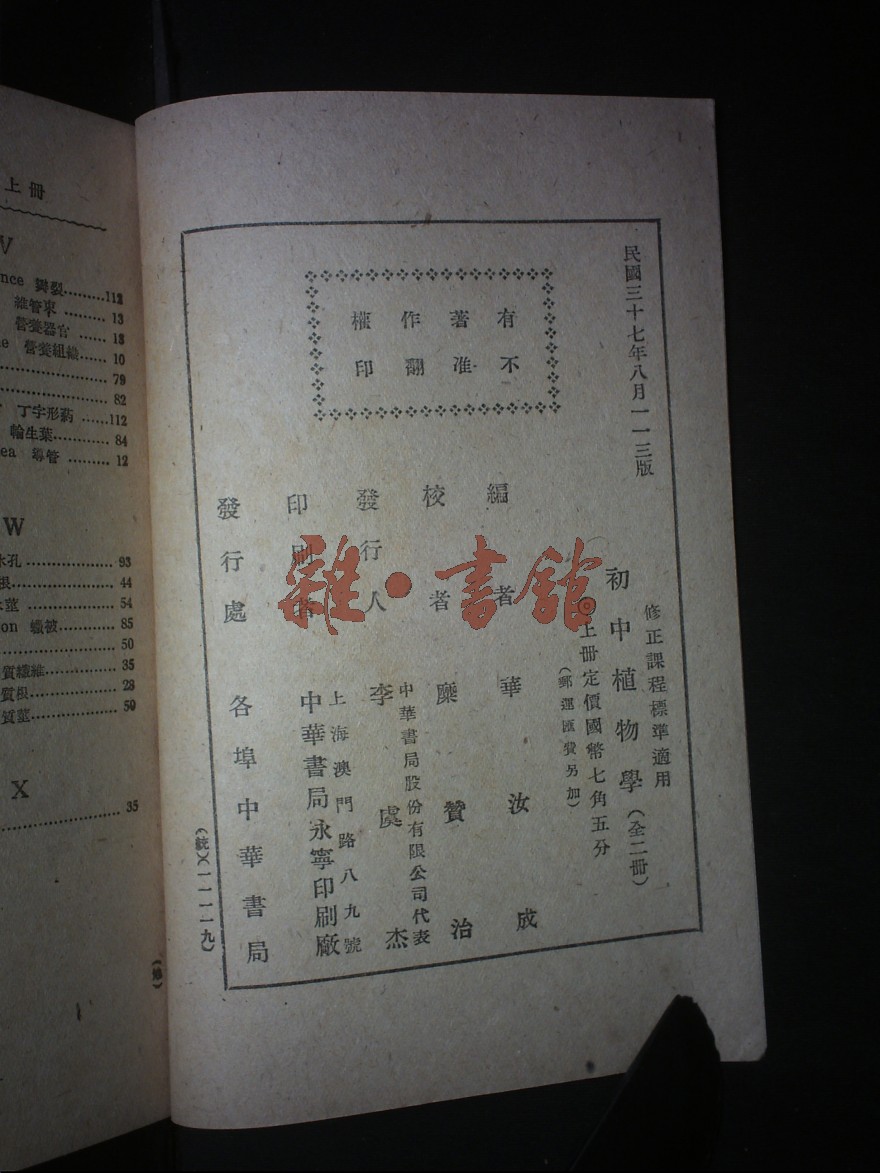 上冊
V
nce 闢裂………112
維管束………13
營養器官……13
營養組織……10
79
82
丁字形葯……112
輪生葉………84
ea 導管………12
W
水孔…………93
根……………44
莖……………54
on 蠟被………85
50
質纖維………35
質根…………28
質莖…………50
X
35
民國三十七年八月一一三版
有著作權
不准翻印
修正課程標準適用
初中植物學(全二冊)
◎上冊定價國幣七角五分
(郵運匯費另加)
編者 華汝成
校者 糜贊治
發行人 中華書局股份有限公司代表
李虞杰
印刷者 上海澳門路八九號
中華書局永寧印刷廠
發行處 各埠中華書局
(統)(一一一一九)
雜·書館